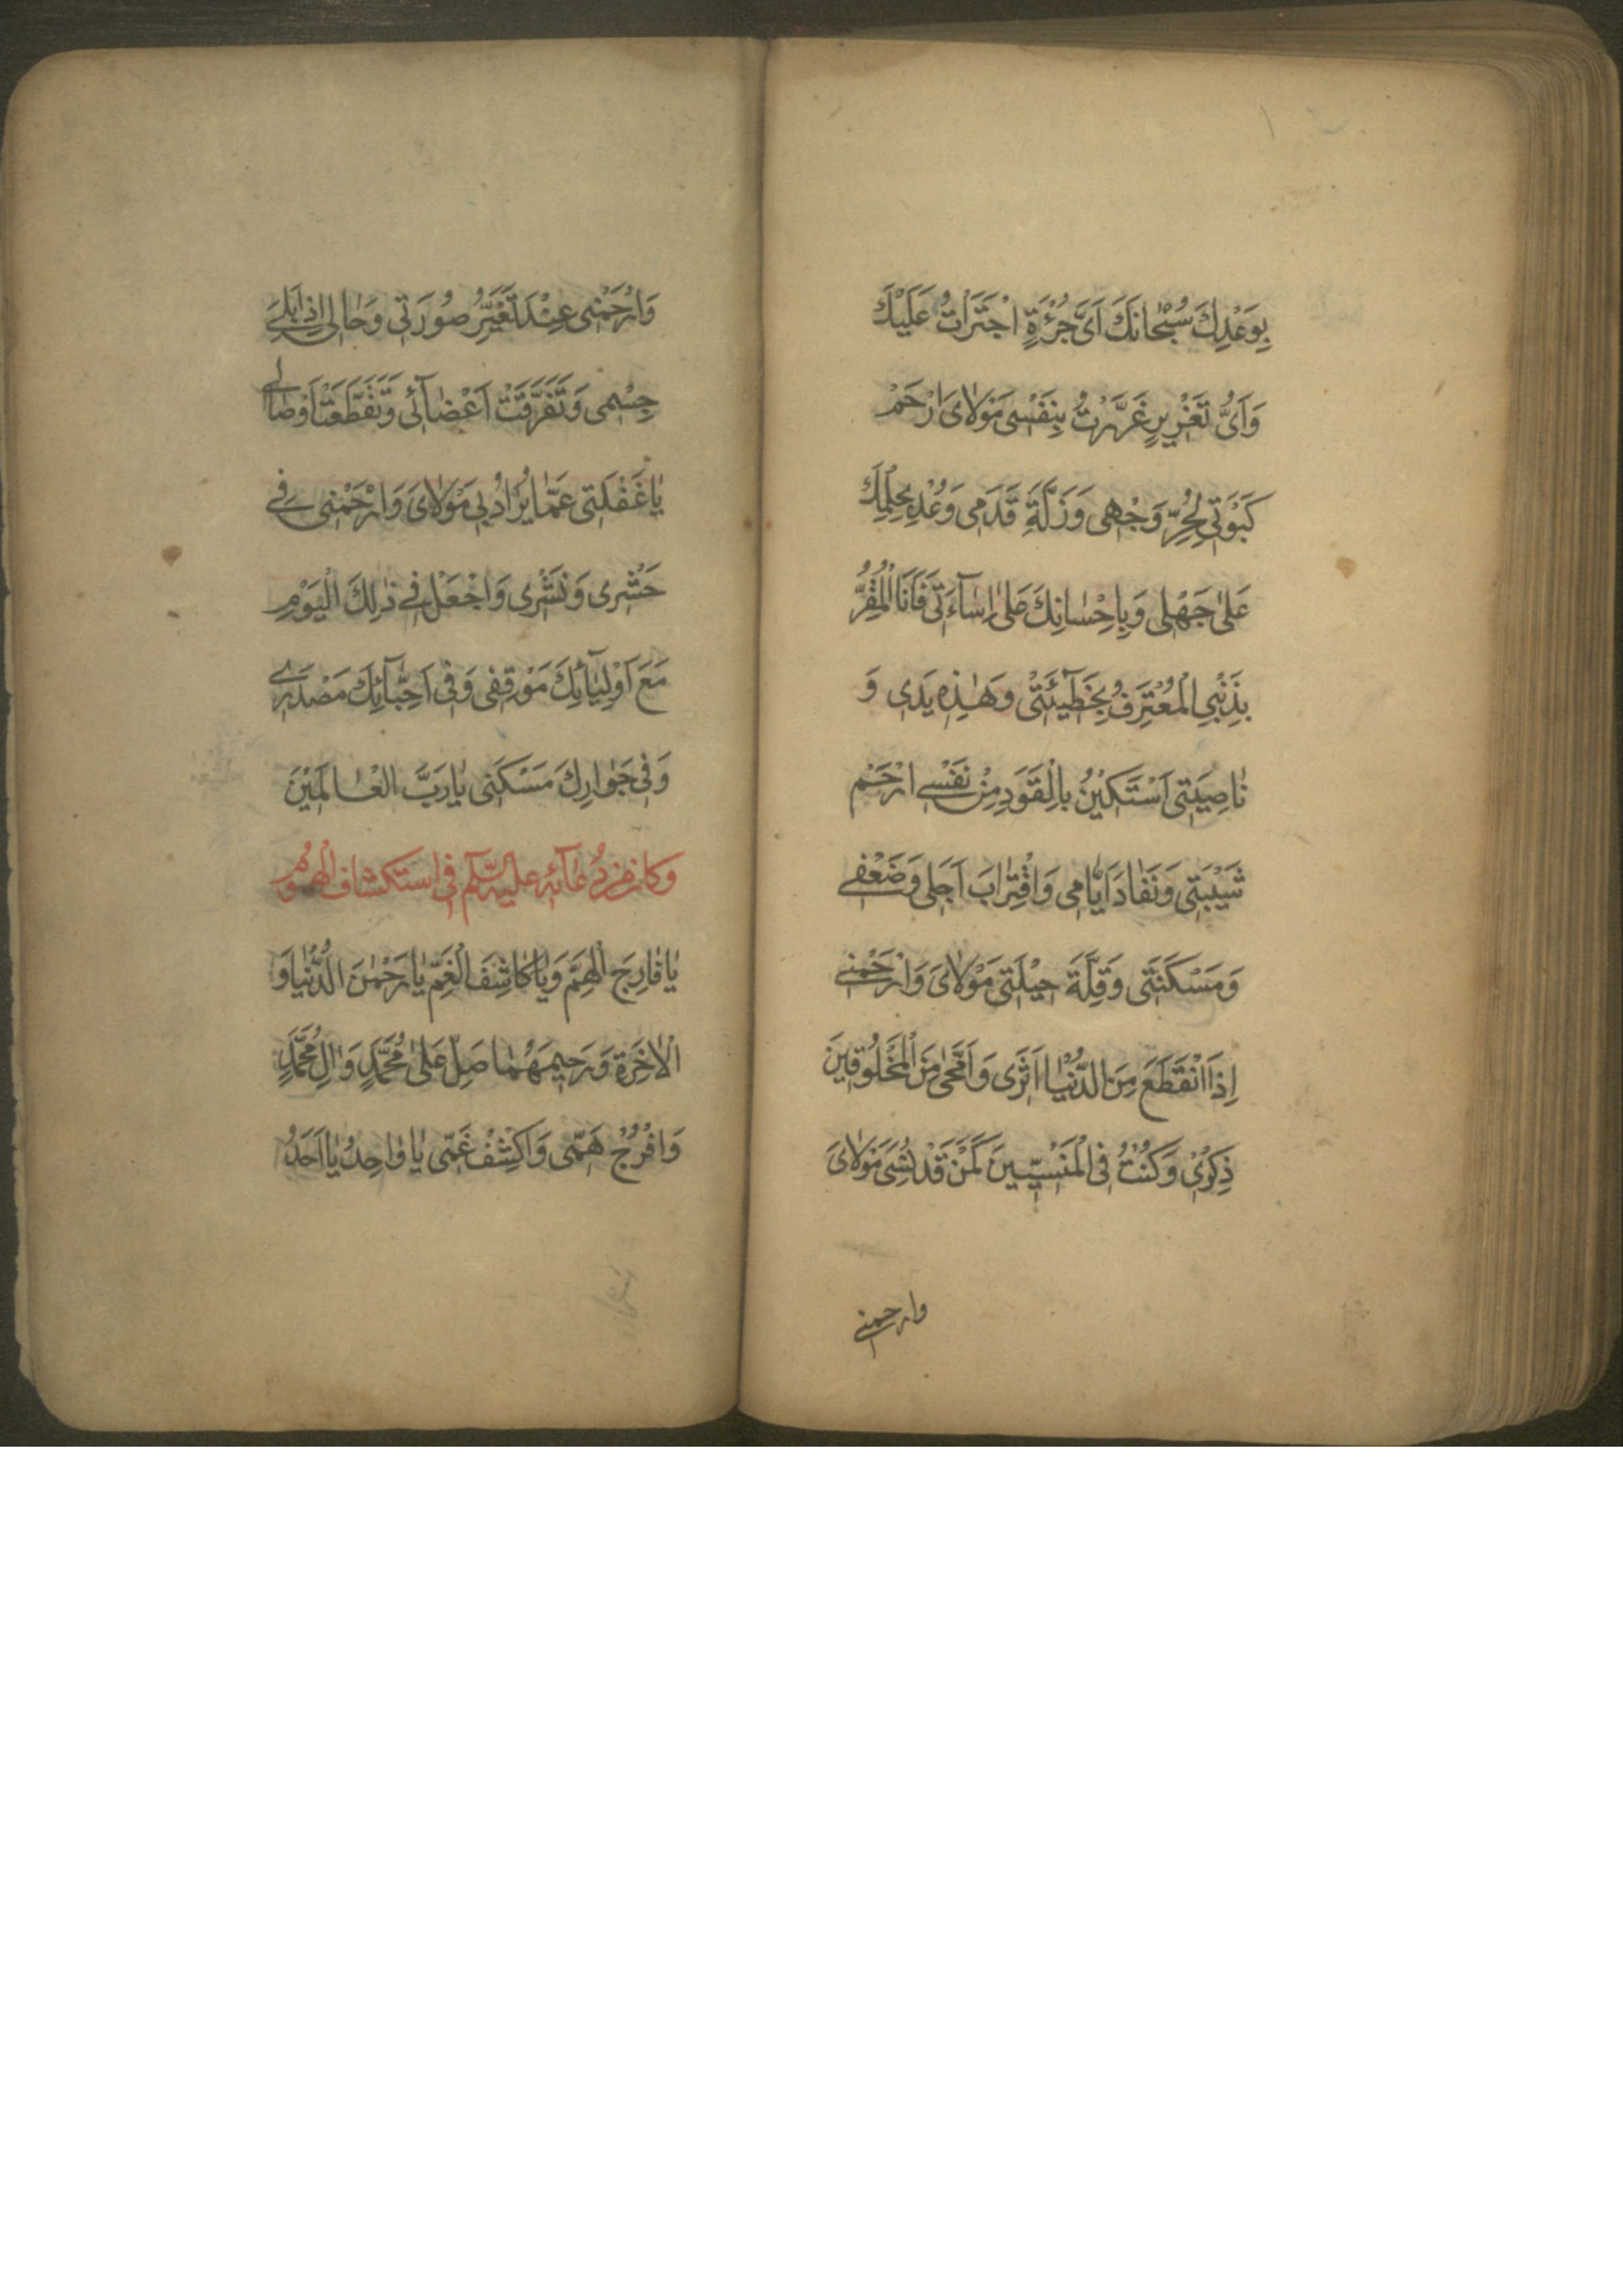 بِوَعْدِكَ سُبْحانَكَ اَىَّ جُرْئَةٍ اجْتَرَاْتُ عَلَيْكَ
وَاَىُّ تَغْرِيرٍ غَرَّرْتُ بِنَفْسى مَوْلاىَ ارْحَمْ
كَبْوَتى لِحُرِّ وَجْهى وَزَلَّةَ قَدَمى وَعُدْ بِحِلْمِكَ
عَلىٰ جَهْلى وَبِاِحْسانِكَ عَلىٰ اِسآءَتى فَاَنَا الْمُقِرُّ
بِذَنْبِى الْمُعْتَرِفُ بِخَطيٓئَتى وَهٰذِهِ يَدى وَ
ناصِيَتى اَسْتَكينُ بِالْقَوَدِ مِنْ نَفْسى ارْحَمْ
شَيْبَتى وَنَفادَ اَيّامى وَاقْتِرابَ اَجَلى وَضَعْفى
وَمَسْكَنَتى وَقِلَّةَ حيْلَتى مَوْلاىَ وَارْحَمْنى
اِذَا انْقَطَعَ مِنَ الدُّنْيا اَثَرى وَامَّحىٰ مِنَ الْمَخْلُوقينَ
ذِكْرى وَكُنْتُ فِى الْمَنْسِيّينَ كَمَنْ قَدْ نُسِىَ مَوْلاىَ
وارحمنى
وَارْحَمْنى عِنْدَ تَغَيُّرِ صُورَتى وَحالى اِذا بَلِىَ
جِسْمى وَتَفَرَّقَتْ اَعْضآئى وَتَقَطَّعَتْ اَوْصالى
يا غَفْلَتى عَمّا يُرادُ بى مَوْلاىَ وَارْحَمْنى فى
حَشْرى وَنَشْرى وَاجْعَلْ فى ذٰلِكَ الْيَوْمِ
مَعَ اَوْلِيآئِكَ مَوْقِفى وَفى اَحِبّآئِكَ مَصْدَرى
وَفى جِوارِكَ مَسْكَنى يا رَبَّ الْعالَمينَ
وكان من دُعآئه عليه السّلم فى استكشاف الهموم
يا فارِجَ الْهَمِّ وَيا كاشِفَ الْغَمِّ يا رَحْمٰنَ الدُّنْيا وَ
الْاٰخِرَةِ وَرَحيمَهُما صَلِّ عَلىٰ مُحَمَّدٍ وَاٰلِ مُحَمَّدٍ
وَافْرُجْ هَمّى وَاكْشِفْ غَمّى يا واحِدُ يا اَحَدُ